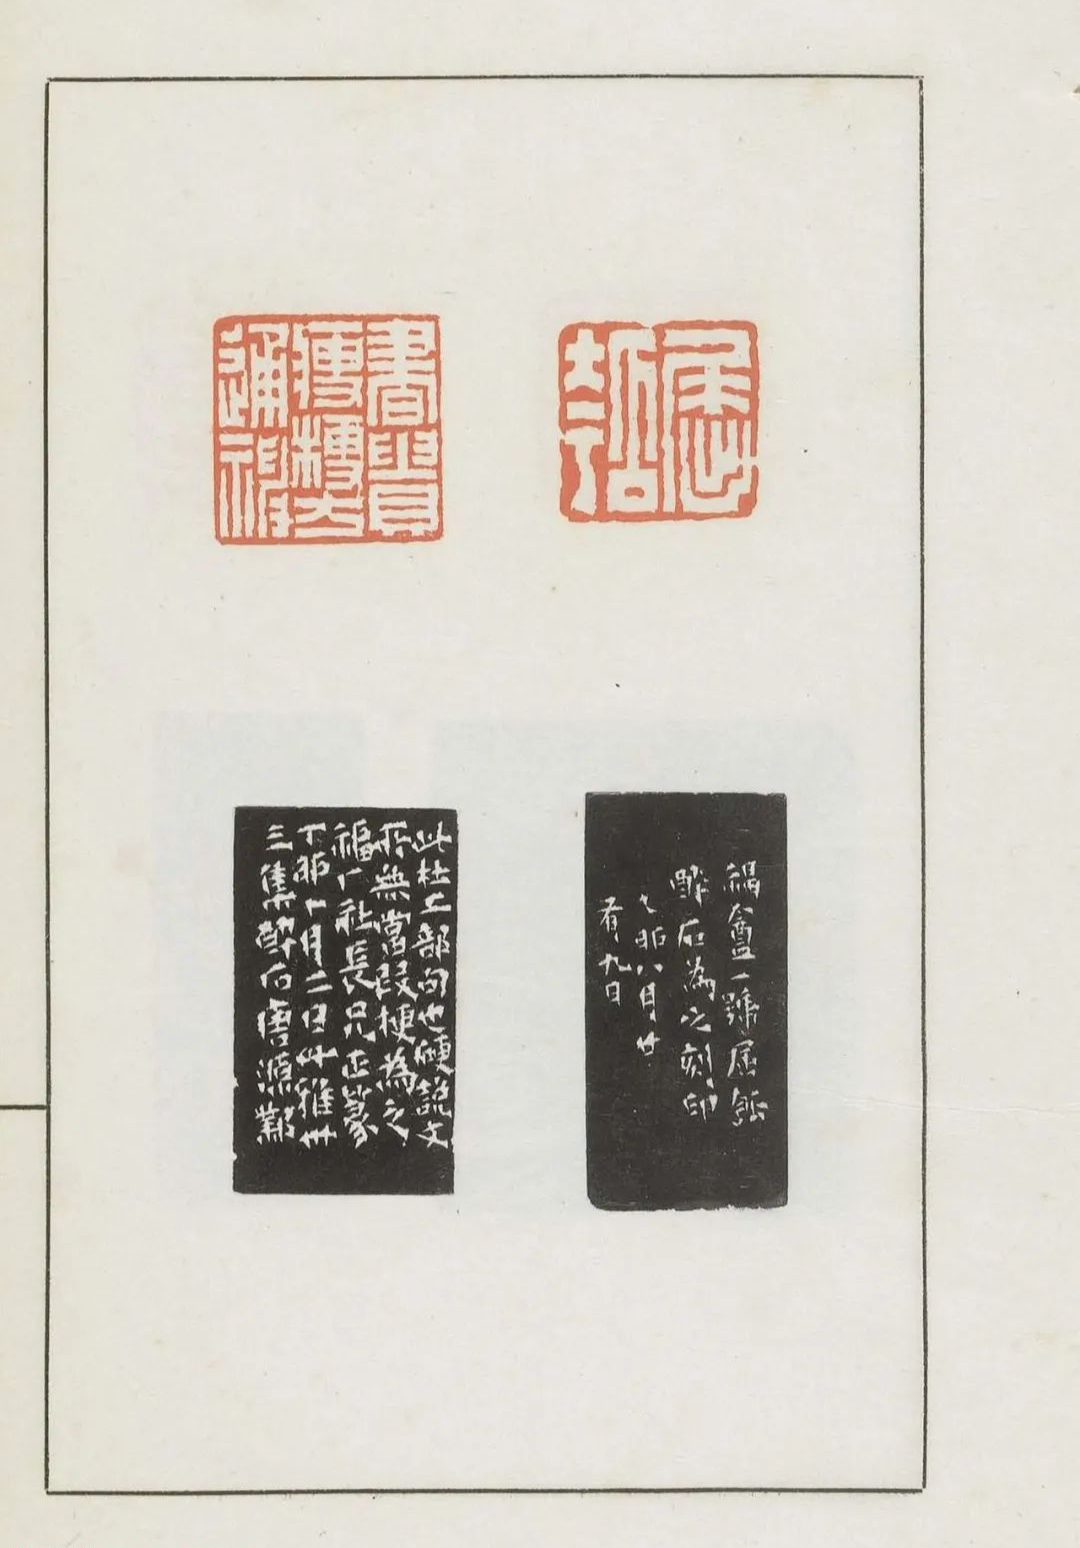 屈
瓠
書貴
瘦梗方
通神
福盦一號屈瓠
醉石為之刻印
乙卯八月廿
有九日
此杜工部句也硬說文
所無當叚梗為之
福厂社長兄正篆
丁卯十月二日雅卅
三集醉石唐源鄴